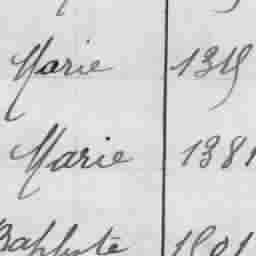 Marie 1319
Marie 1381
Baptiste